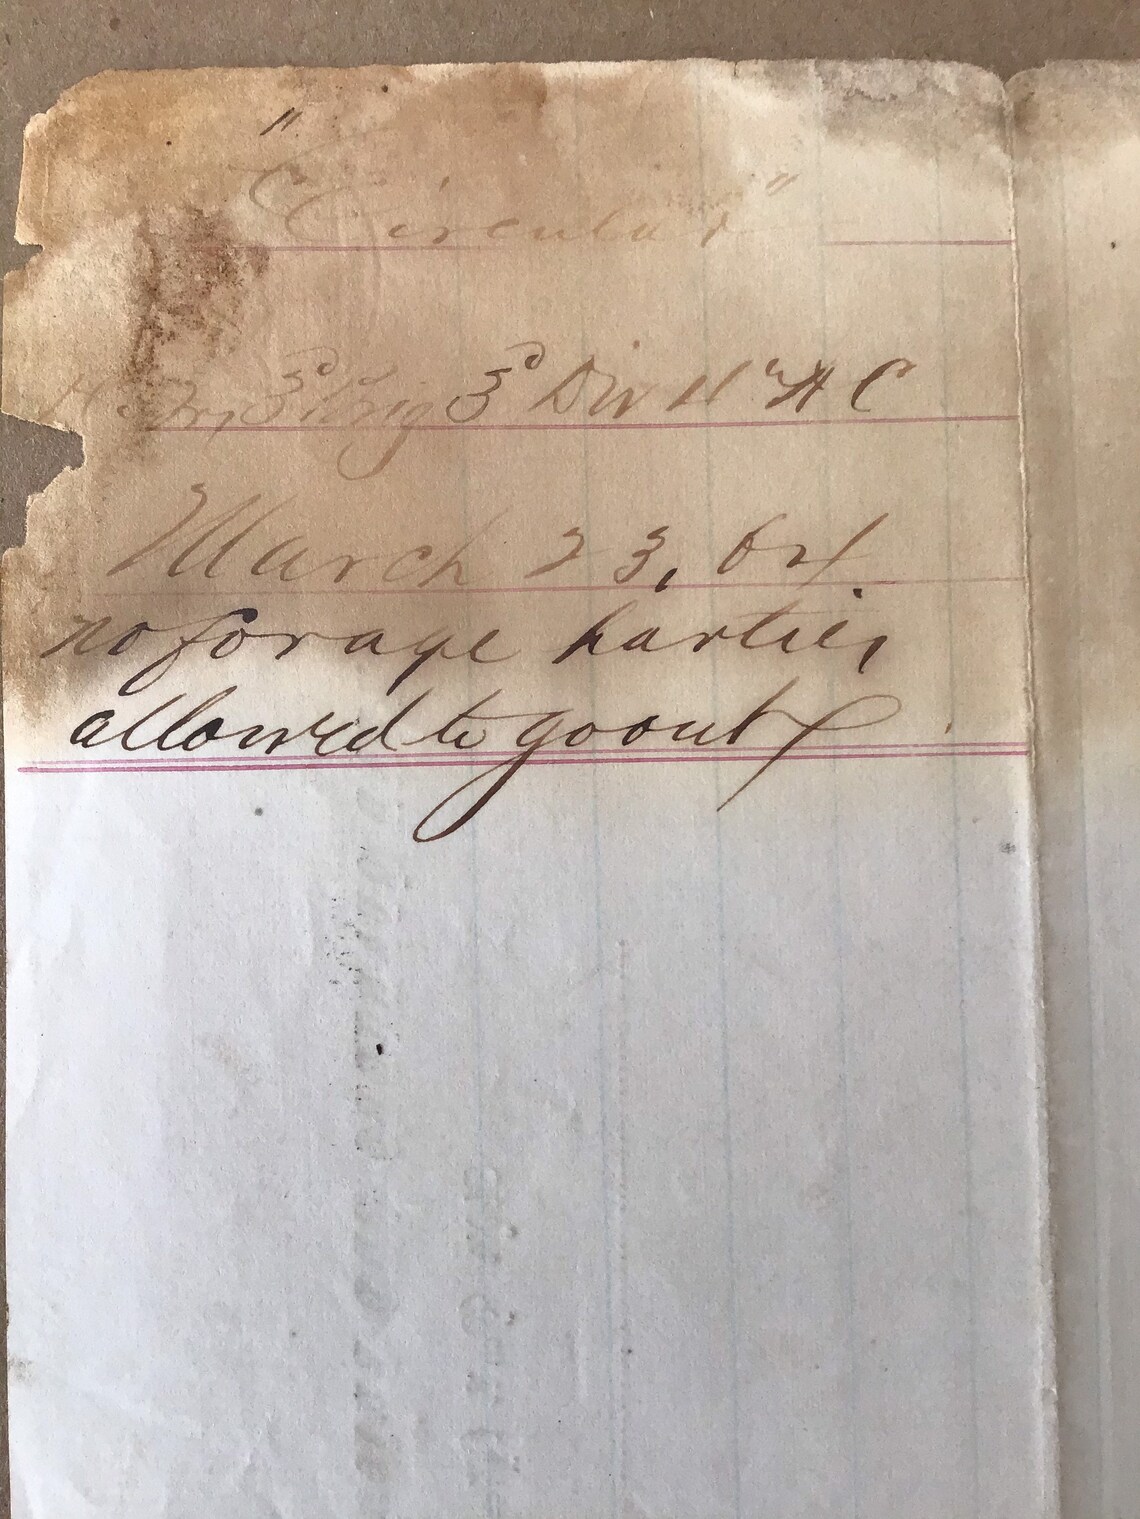 "Circular"
Hd Qrs 3d Brig 3d Div 11" A C
March 23, 64
no forage parties
allowed to go out